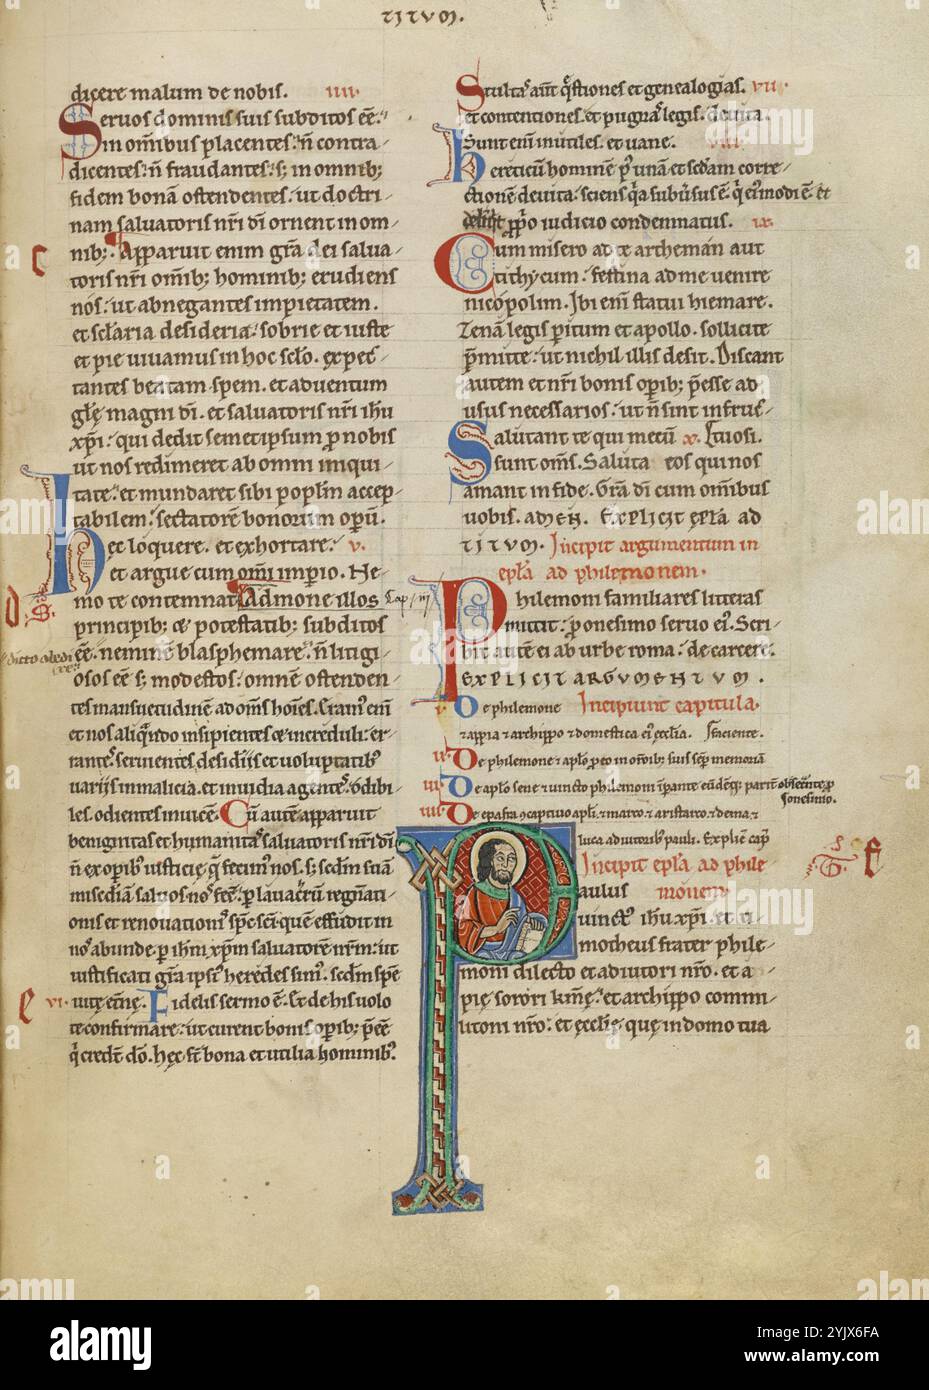 TITUM.
dicere malum de nobis. IIII.
Seruos dominis suis subditos eē.
in omnibus placentes. n̄ contra-
dicentes. n̄ fraudantes. s; in omnib;
fidem bonā ostendentes. ut doctri-
nam saluatoris nr̄i dī ornent in om-
nib;. Apparuit enim gr̄a dei salua-
c
toris nr̄i om̄ib; hominib; erudiens
nos. ut abnegantes impietatem.
et sc̄laria desideria. sobrie et iuste
et pie uiuamus in hoc sc̄lo. expec-
tantes beatam spem. et aduentum
gl̄ę magni dī. et saluatoris nr̄i ih̄u
xp̄i. qui dedit semetipsum p nobis
ut nos redimeret ab omni iniqui-
tate. et mundaret sibi pop̄lm accep-
tabilem. sectatorē bonorum operū.
Hec loquere. et exhortare. V.
et argue cum om̄i imp̄io. Ne-
mo te contemnat. Admone illos
Cap. III
d
principib; & potestatib; subditos
eē. neminē blasphemare. n̄ litigi-
dicto obedi
osos eē s; modestos. omnē ostenden-
tes mansuetudinē ad om̄s hoīes. Eram; enī
et nos aliq̄ndo insipientes & increduli. er-
rantes. seruientes desideriis et uoluptatib;
uariis in malicia. et inuidia agentes. odibi-
les. odientes inuicē. Cū autē apparuit
benignitas et humanitas saluatoris nr̄i dī
n̄ ex operib; iusticię q̄ fecim; nos. s; scdm suā
misc̄diam saluos nos fec̄. p lauacrū regn̄ati-
onis et renouationis sp̄c sc̄i. quē effudit in
nos abunde. p ih̄m xp̄m saluatorē nr̄m. ut
iustificati gr̄a ipsi; heredes sim;. scdm spē
e VI.
uitę et̄nę. Fidelis sermo ē. Et de his uolo
te confirmare. ut curent bonis op̄ib; p̄eē
q̄ credt̄ dō. Hęc st̄ bona et utilia hominib;.
Stultas aūt q̄stiones et genealogias. VII.
et contentiones. et pugnas legis. deuita.
Sunt enī inutiles. et uanę. VIII.
Hereticū hominē p̄ unā et scdam corre-
ctionē deuita. sciens q̄a subūsus ē q̄ ei;modi ē. et
delinq̄t pp̄o iudicio condemnatus. IX.
Cum misero ad te archeman aut
tithycum. festina ad me uenire
nicopolim. Ibi enī statui hiemare.
Zenā legis p̄itum et apollo. sollicite
p̄mitte. ut nichil illis desit. Discant
autem et nr̄i bonis op̄ib; p̄esse ad
usus necessarios. ut n̄ sint infruc-
Salutant te qui mecū X. tuosi.
sunt om̄s. Saluta eos qui nos
amant in fide. Gr̄a dī cum omnib;
uobis. AMEN. EXPLICIT EPL̄A AD
TITUM. Incipit argumentum in
epl̄a ad philemonem.
Philemoni familiares litteras
mittit. p onesimo seruo ei;. Scri-
bit autē ei ab urbe roma. de carcere.
EXPLICIT ARGUMENTUM.
I. De philemone Incipiunt capitula.
& appia & archippo & domestica ei; ecclīa. faciente.
II. De philemone & apl̄o p eo in om̄ib; suis semp memoriā
III. De apl̄o sene & uincto philemoni
onesimo.
IIII. De epafra 
luca adiutorib; pauli. Explic̄ cap̄
Incipit epl̄a ad phile-
f
Paulus monem
uinctus ih̄u xp̄i. et ti-
motheus frater phile-
moni dilecto et adiutori nr̄o. et ap-
pię sorori kmę. et archippo commi-
litoni nr̄o. et ęcclīę. quę in domo tua